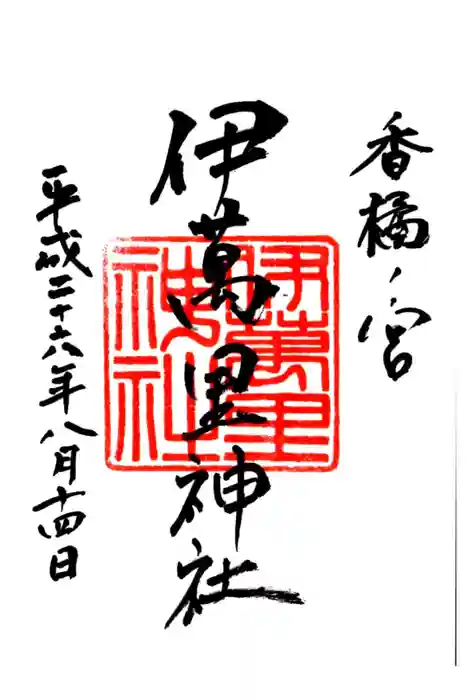 香橘ノ宮
伊萬里神社
伊萬里
神社
平成二十六年八月十四日